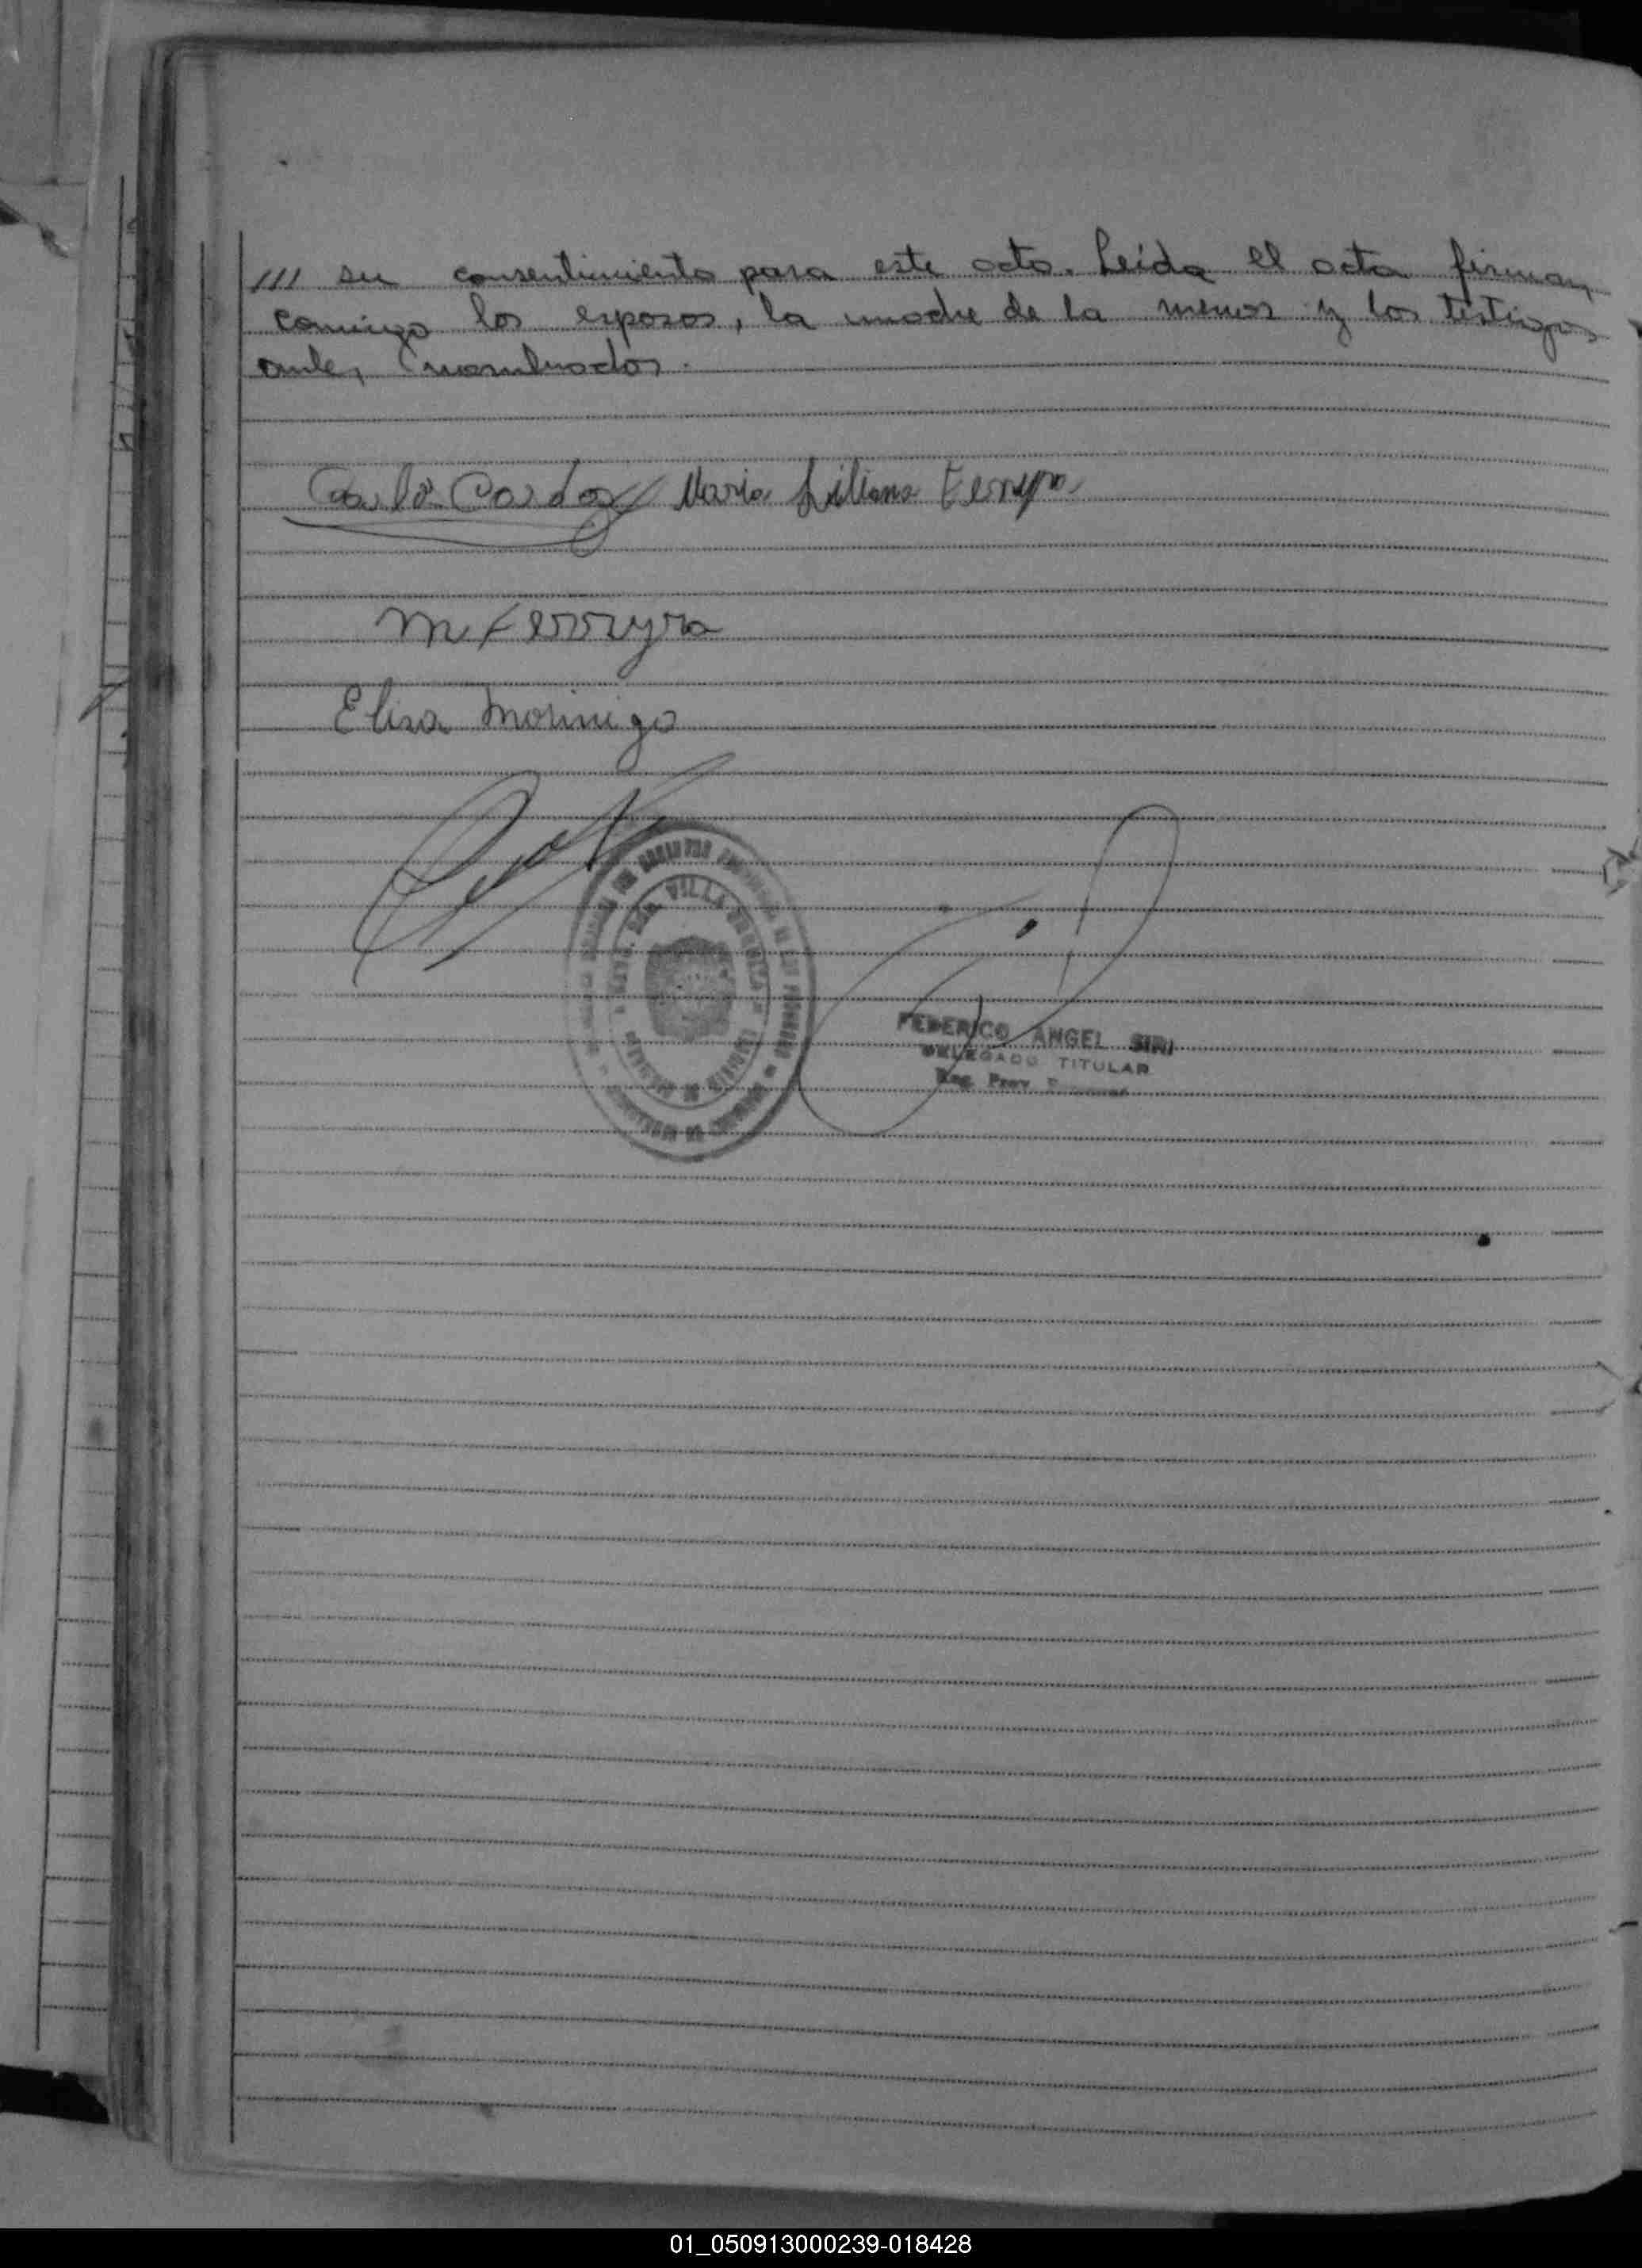 /// su consentimiento para este acto. Leída el acta firman
conmigo los esposos, la madre de la menor y los testigos
antes nombrados.
Carlo Cardoz Maria Liliana Ferreyra
M Ferreyra
Elisa Morinigo
VILLA
FEDERICO ANGEL SIRI
DELEGADO TITULAR
Reg. Prov.
01_050913000239-018428